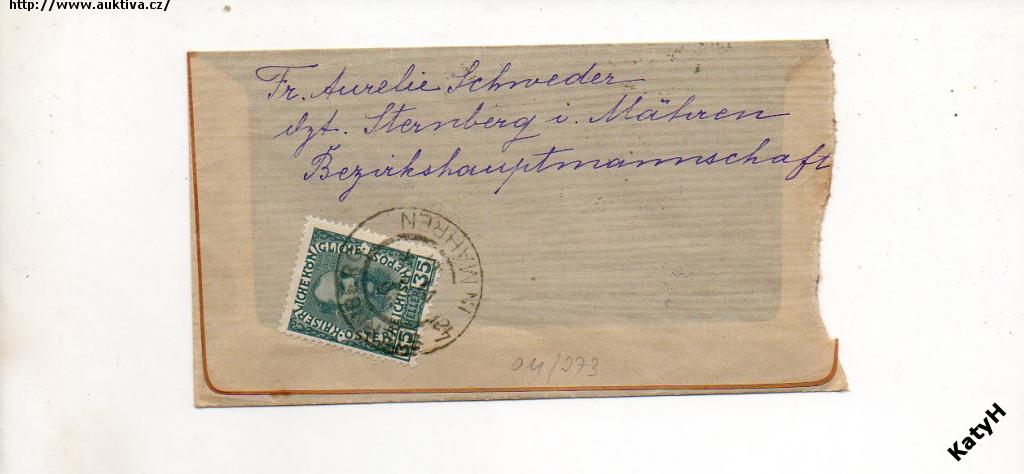 http://www.auktiva.cz/
Fr. Aurelie Schweder
dzt. Sternberg i. Mähren
Bezirkshauptmannschaft
KAISERLICHE KÖNIGLICHE
ÖSTERREICHISCHE POST
35 HELLER 35
IN MÄHREN
011/273
KatyH